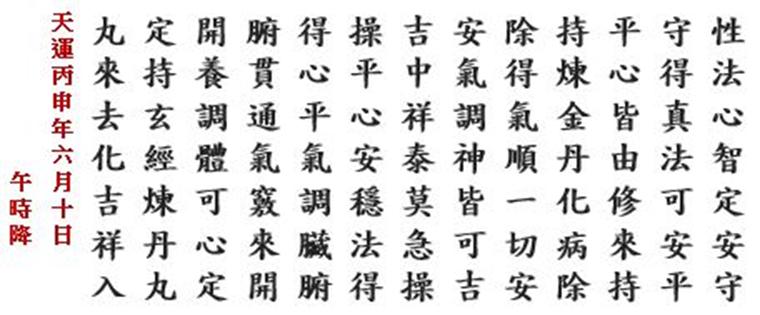 性法心智定安守
守得真法可安平
平心皆由修來持
持煉金丹化病除
除得氣順一切安
安氣調神皆可吉
吉中祥泰莫急操
操平心安穩法得
得心平氣調臟腑
腑貫通氣竅來開
開養調體可心定
定持玄經煉丹丸
丸來去化吉祥入
天運丙申年六月十日
午時降